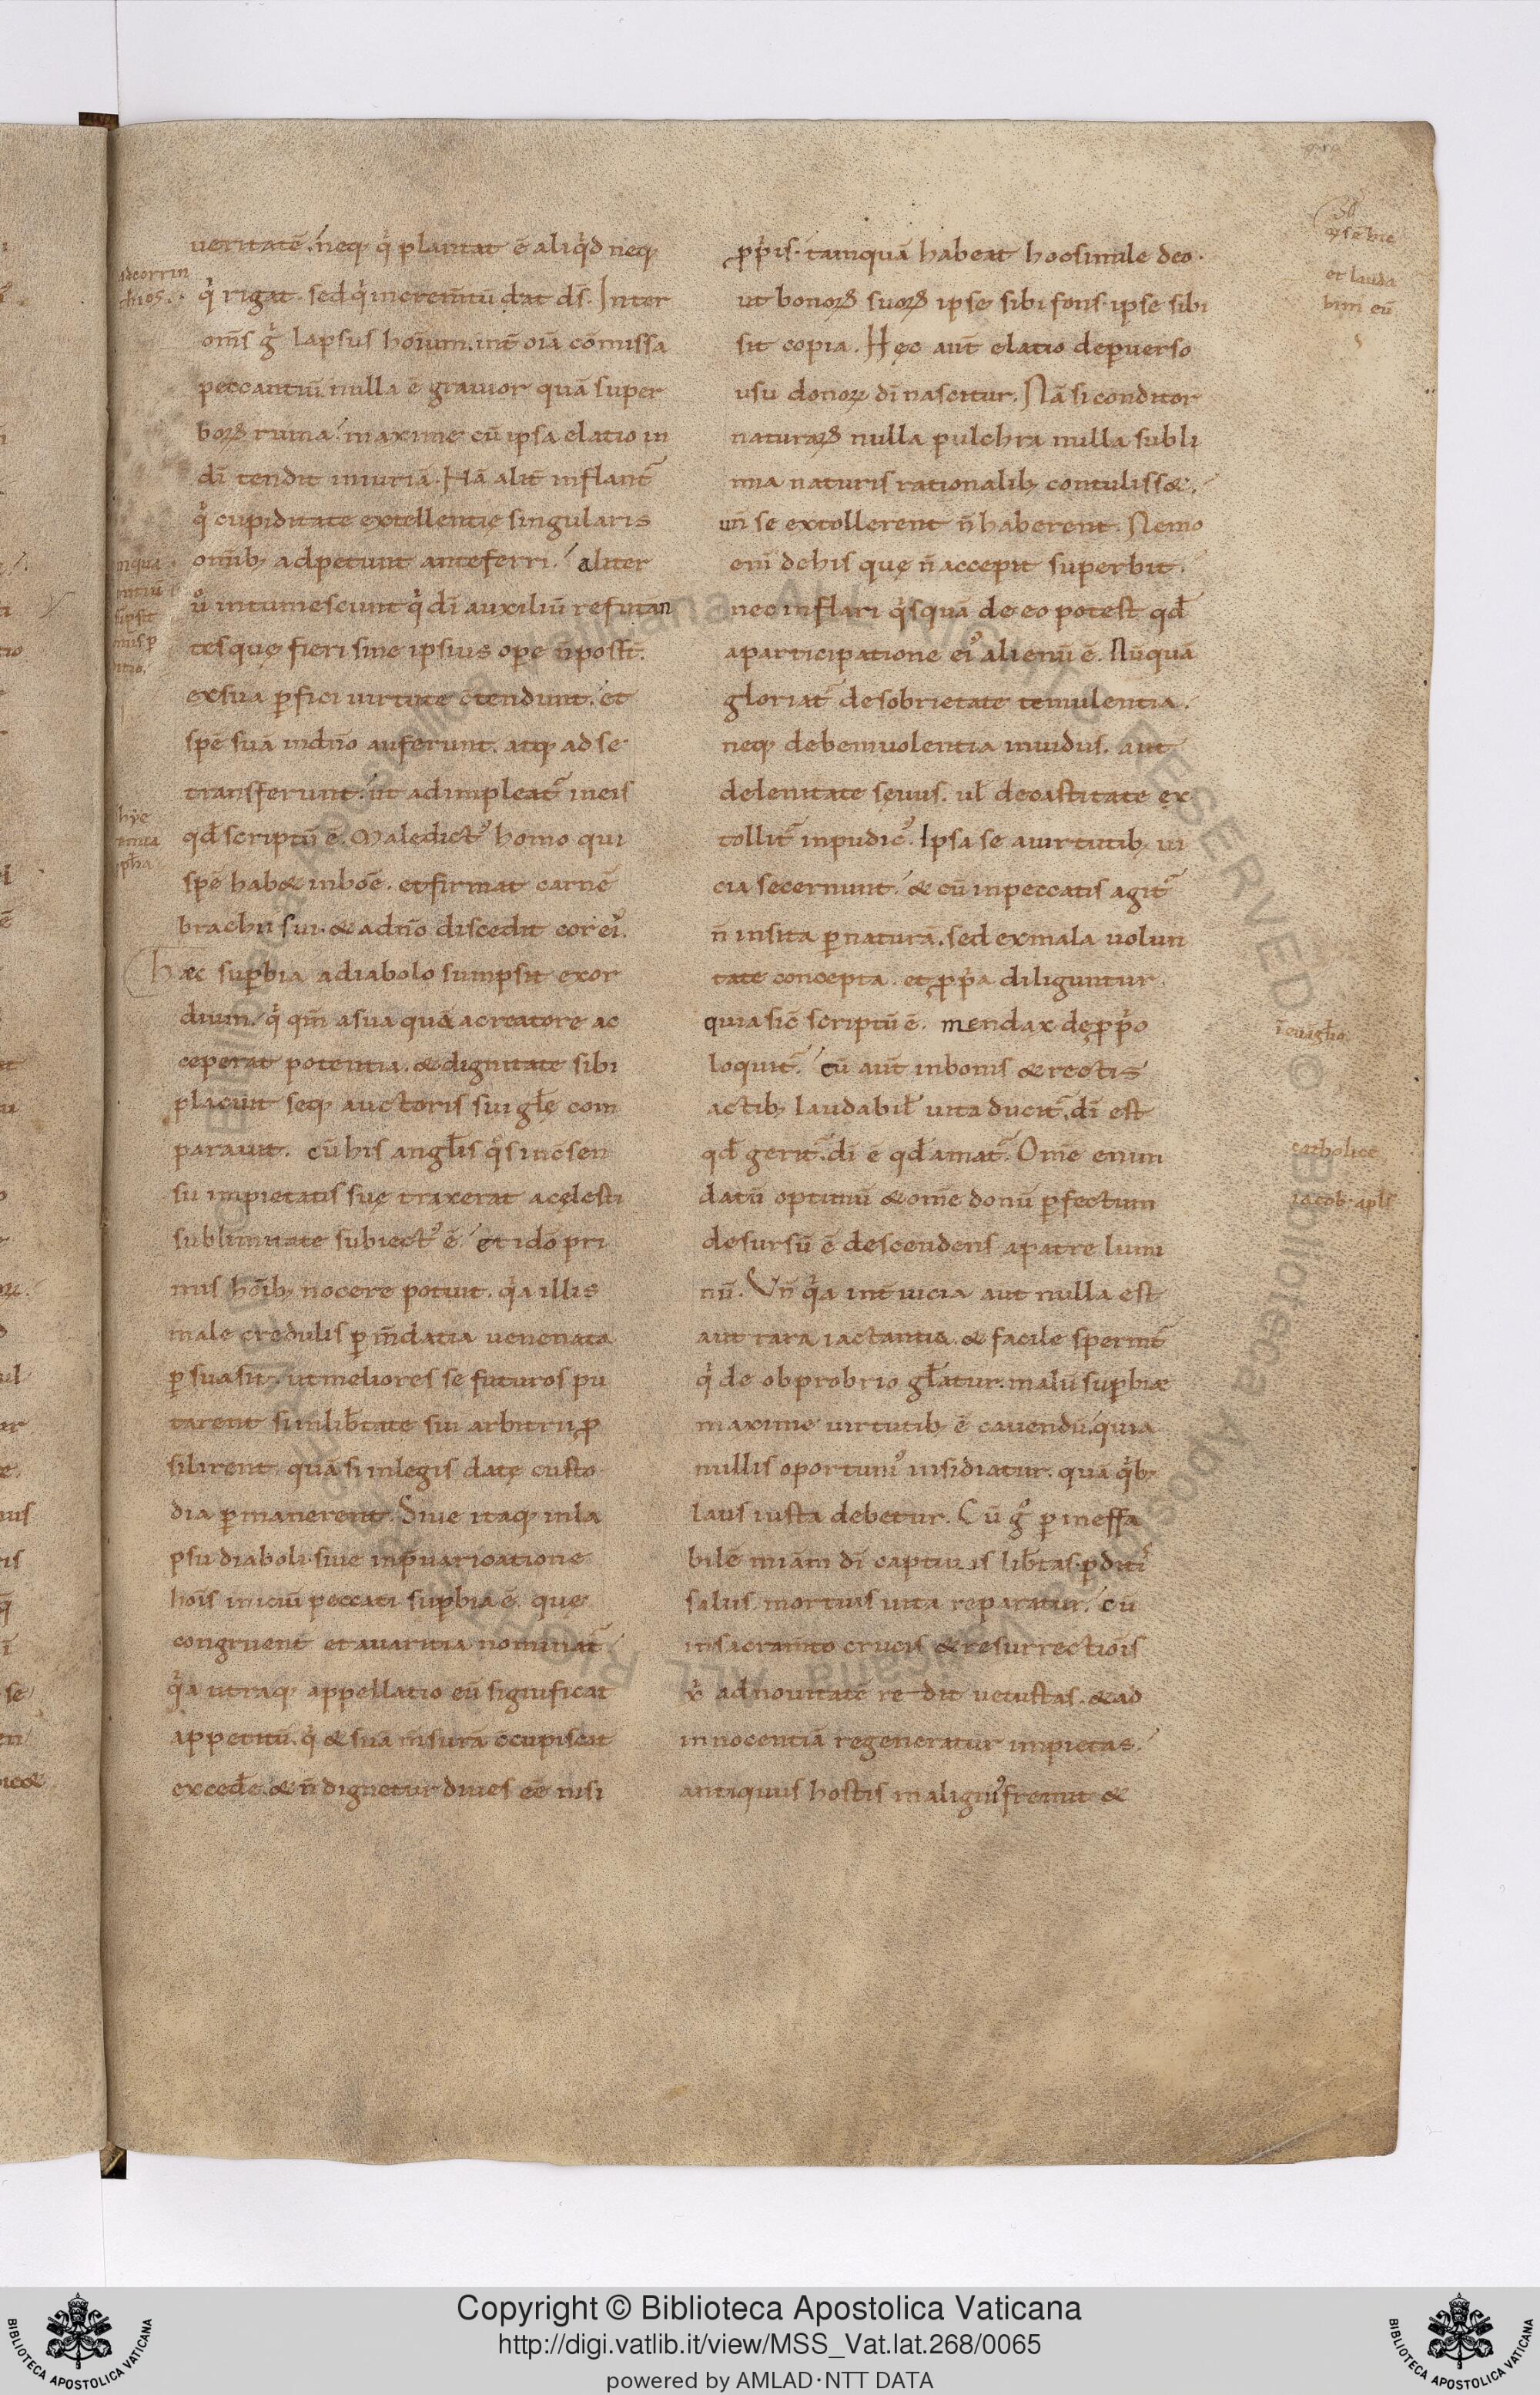 ueritatē. neq; q̇ plantat ē aliq̇d neq;
q̇ rigat. sed q̇ increm̄tū dat ds̄. Inter
om̄s g̊ lapsus hoīum. int̄ oīa cōmissa
peccantiū nulla ē grauior quā super
boꝝ ruina. maxime cū ipsa elatio in
dī tendit iniuriā. Nā alit̄ inflant᷑
q̇ cupiditate excellentię singularis
omīb; adpetunt anteferri. aliter
ů intumescunt q̇ dī auxiliū refutan
tes quę fieri sine ipsius ope n̄ poss̄t.
ex sua ꝑfici uirtute c̄tendunt. et
spē suā in dn̄o auferunt. atq; ad se
transferunt. ut adimpleat᷑ in eis
qd̄ scriptū ē. Maledict᾽ homo qui
spē hab& in hoē. et firmat carnē
brachii sui. & a dn̄o discedit cor ei᾽.
Hæc suꝑbia a diabolo sumpsit exor
dium. q̇ qm̄ a sua quā a creatore ac
ceperat potentia. & dignitate sibi
placuit seq; auctoris sui gl̄ę com
parauit. cū his angl̄is q̊s in c̄sen
su impietatis suę traxerat a cęlesti
sublimitate subiect᾽ ē. et idō pri
mis hoīb; nocere potuit. q̇a illis
male credulis ꝑ m̄datia uenenata
ꝑsuasit. ut meliores se futuros pu
tarent si in lib̄tate sui arbitrii ꝓ
silirent. quā si in legis datę custo
dia ꝑmanerent. Siue itaq; in la
psu diaboli. siue in p̄uaricatione
hoīs initiū peccati suꝑbia ē. quę
congruent̄ et auaritia nominat᷑
q̇a utraq; appellatio eū significat
appetitū. q̇ & suā m̄surā c̄cupiscit
exced̄e. & n̄ dignetur diues eē nisi
ꝓpiis. tamquā habeat hoc simile deo.
ut bonoꝝ suoꝝ ipse sibi fons. ipse sibi
sit copia. Hęc aut̄ elatio de ꝑuerso
usu donoꝝ dī nascitur. Nā si conditor
naturaꝝ nulla pulchra nulla subli
mia naturis rationalib; contuliss&.
un̄ se extollerent n̄ haberent. Nemo
enī de his quę n̄ accepit superbit.
nec inflari q̇squā de eo potest qd̄
a participatione ei᾽ alienū ē. Nūquā
gloriat᷑ de sobrietate temulentia.
neq; de beniuolentia inuidus. aut
de lenitate sęuus. ul̄ de castitate ex
tollit᷑ inpudic᾽. Ipsa se a uirtutib; ui
cia secernunt. & cū in peccatis agit᷑
n̄ insita ꝑ naturā. sed ex mala uolun
tate concepta. et ꝓpa diliguntur.
quia sic̄ scriptū ē. mendax de ꝓpo
loquit᷑. cū aut̄ in bonis & rectis
actib; laudabil̄ uita ducit᷑. dī est
qd̄ gerit᷑. dī ē qd̄ amat᷑. Om̄e enim
datū optimū & om̄e donū ꝑfectum
desursū ē descendens a patre lumi
nū. Un̄ q̇a int̄ uicia aut nulla est
aut rara iactantia. & facile spernit᷑
q̇ de obprobrio gl̄atur. malū suꝑbiæ
maxime uirtutib; ē cauendū. quia
nullis oportuni᾽ insidiatur. quā q̇b;
laus iusta debetur. Cū g̊ ꝑ ineffa
bilē miā̄m dī captiuis lib̄tas. ꝑditi᾽
salus. mortuis uita reparatur. cū
in sacram̄to crucis & resurrectiōis
x̄ ad nouitatē redit uetustas. & ad
innocentiā regeneratur impietas.
antiquus hostis malign᾽ fremit &
ad corrin
thios.
& lauda
bim̄ eū
ī euāgl̄io
catholice
iacob: apl̄i
Copyright © Biblioteca Apostolica Vaticana
http://digi.vatlib.it/view/MSS_Vat.lat.268/0065
powered by AMLAD·NTT DATA
BIBLIOTECA APOSTOLICA VATICANA
BIBLIOTECA APOSTOLICA VATICANA